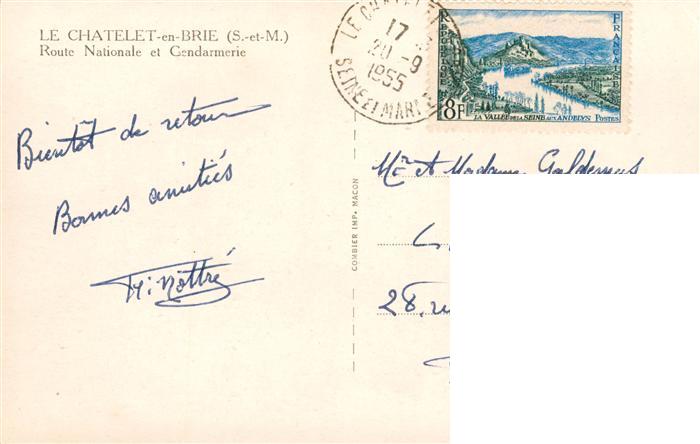 LE CHATELET-en-BRIE (S.-et-M.)
Route Nationale et Gendarmerie
LE CHATEL
17
20 -9
1955
SEINE ET MARNE
REPUBLIQUE
FRANÇAISE
8F
LA VALLÉE DE LA SEINE AUX ANDELYS POSTES
Bientôt de retour
Bonnes amitiés
COMBIER IMP. MACON
Mr et Madame
28, rue